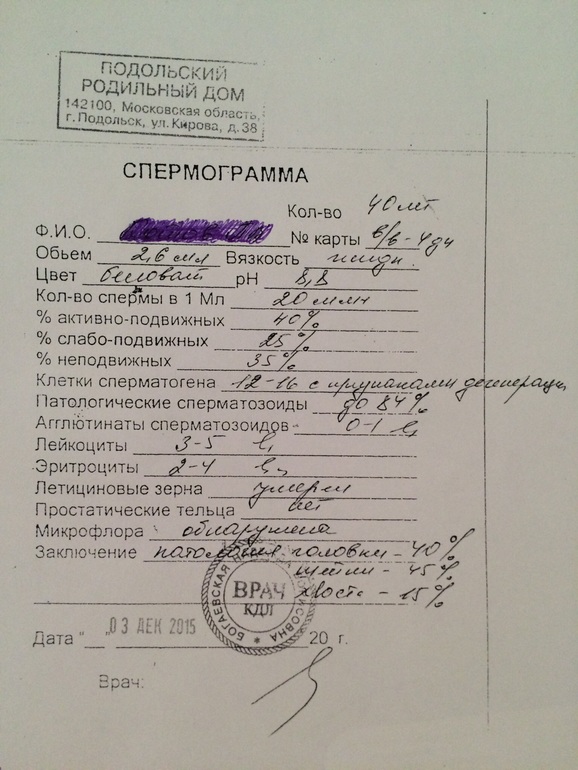 ПОДОЛЬСКИЙ
РОДИЛЬНЫЙ ДОМ
142100, Московская область,
г. Подольск, ул. Кирова, д. 38
СПЕРМОГРАММА
Кол-во 40 лет
Ф.И.О. № карты в/в - 4 дн
Обьем 2,6 мл Вязкость
Цвет беловат pH 8,8
Кол-во спермы в 1 Мл 20 млн
% активно-подвижных 40%
% слабо-подвижных 25%
% неподвижных 35%
Клетки сперматогена 12-16 с признаками дегенерации
Патологические сперматозоиды до 84%
Агглютинаты сперматозоидов 0-1
Лейкоциты 3-5
Эритроциты 2-4
Летициновые зерна умерен
Простатические тельца нет
Микрофлора обнаружена
Заключение патология головки - 40%
шейки - 45%
хвоста - 15%
БОГАЕВСКАЯ БОРИСОВНА
ВРАЧ
КДЛ
Дата “ 03 ДЕК 2015 20 г.
Врач: